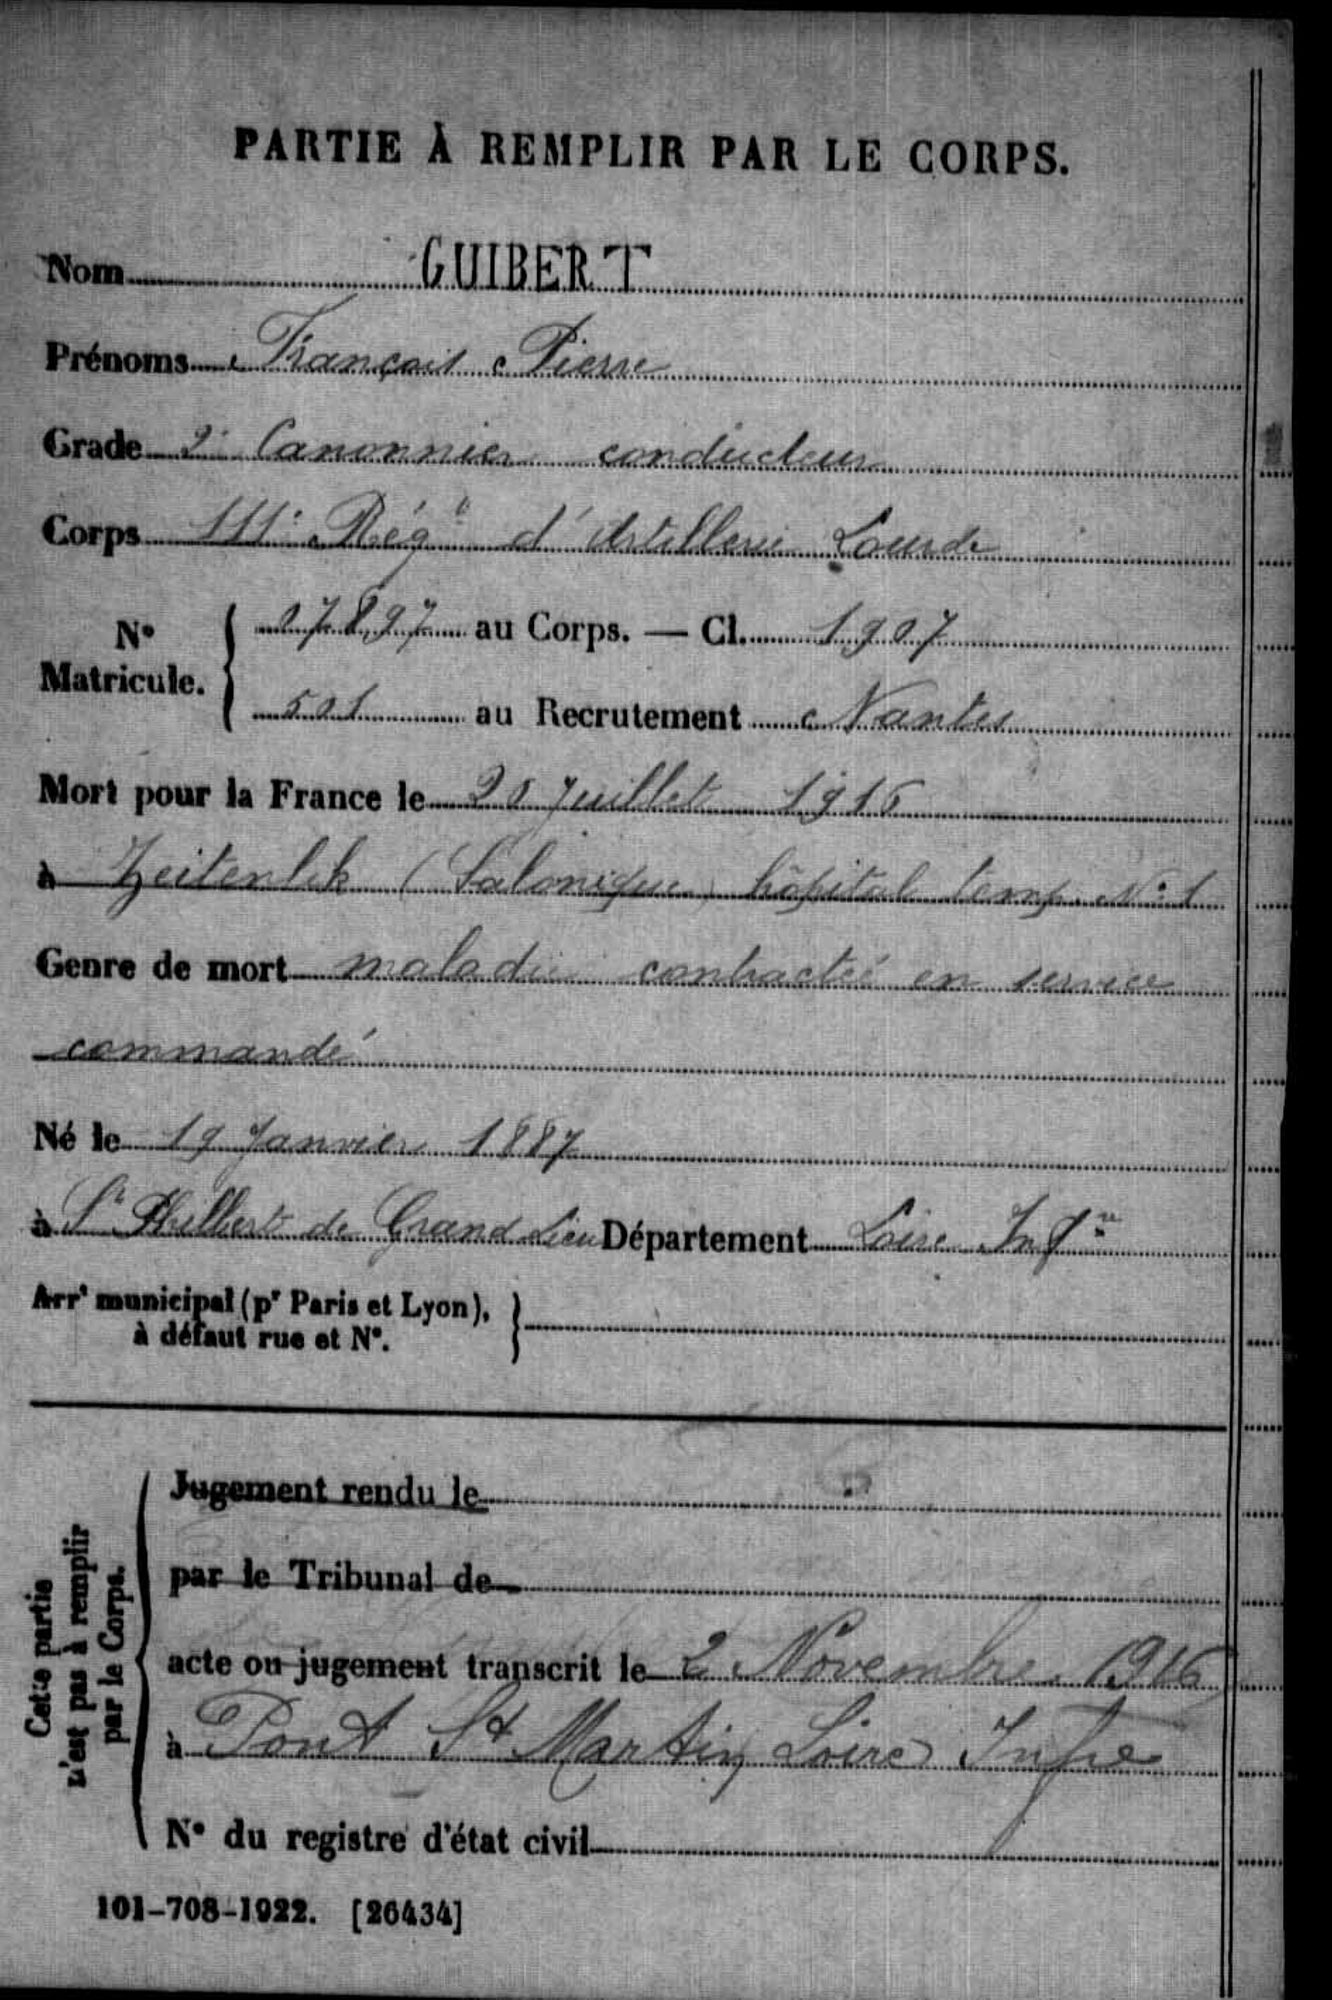 PARTIE À REMPLIR PAR LE CORPS.
Nom GUIBERT
Prénoms François Pierre
Grade 2e Canonnier conducteur
Corps 111e Régt d'Artillerie Lourde
No Matricule. 07897 au Corps. — Cl. 1907
501 au Recrutement Nantes
Mort pour la France le 20 Juillet 1916
à Zeitenlik (Salonique) hôpital temp. No 1
Genre de mort maladie contractée en service
commandé
Né le 19 Janvier 1887
à St Philbert de Grand Lieu Département Loire Infre
Arrt municipal (pr Paris et Lyon),
à défaut rue et No.
Cette partie
n'est pas à remplir
par le Corps.
Jugement rendu le
par le Tribunal de
acte ou jugement transcrit le 2 Novembre 1916
à Pont St Martin Loire Infre
No du registre d'état civil
101-708-1922. [26434]